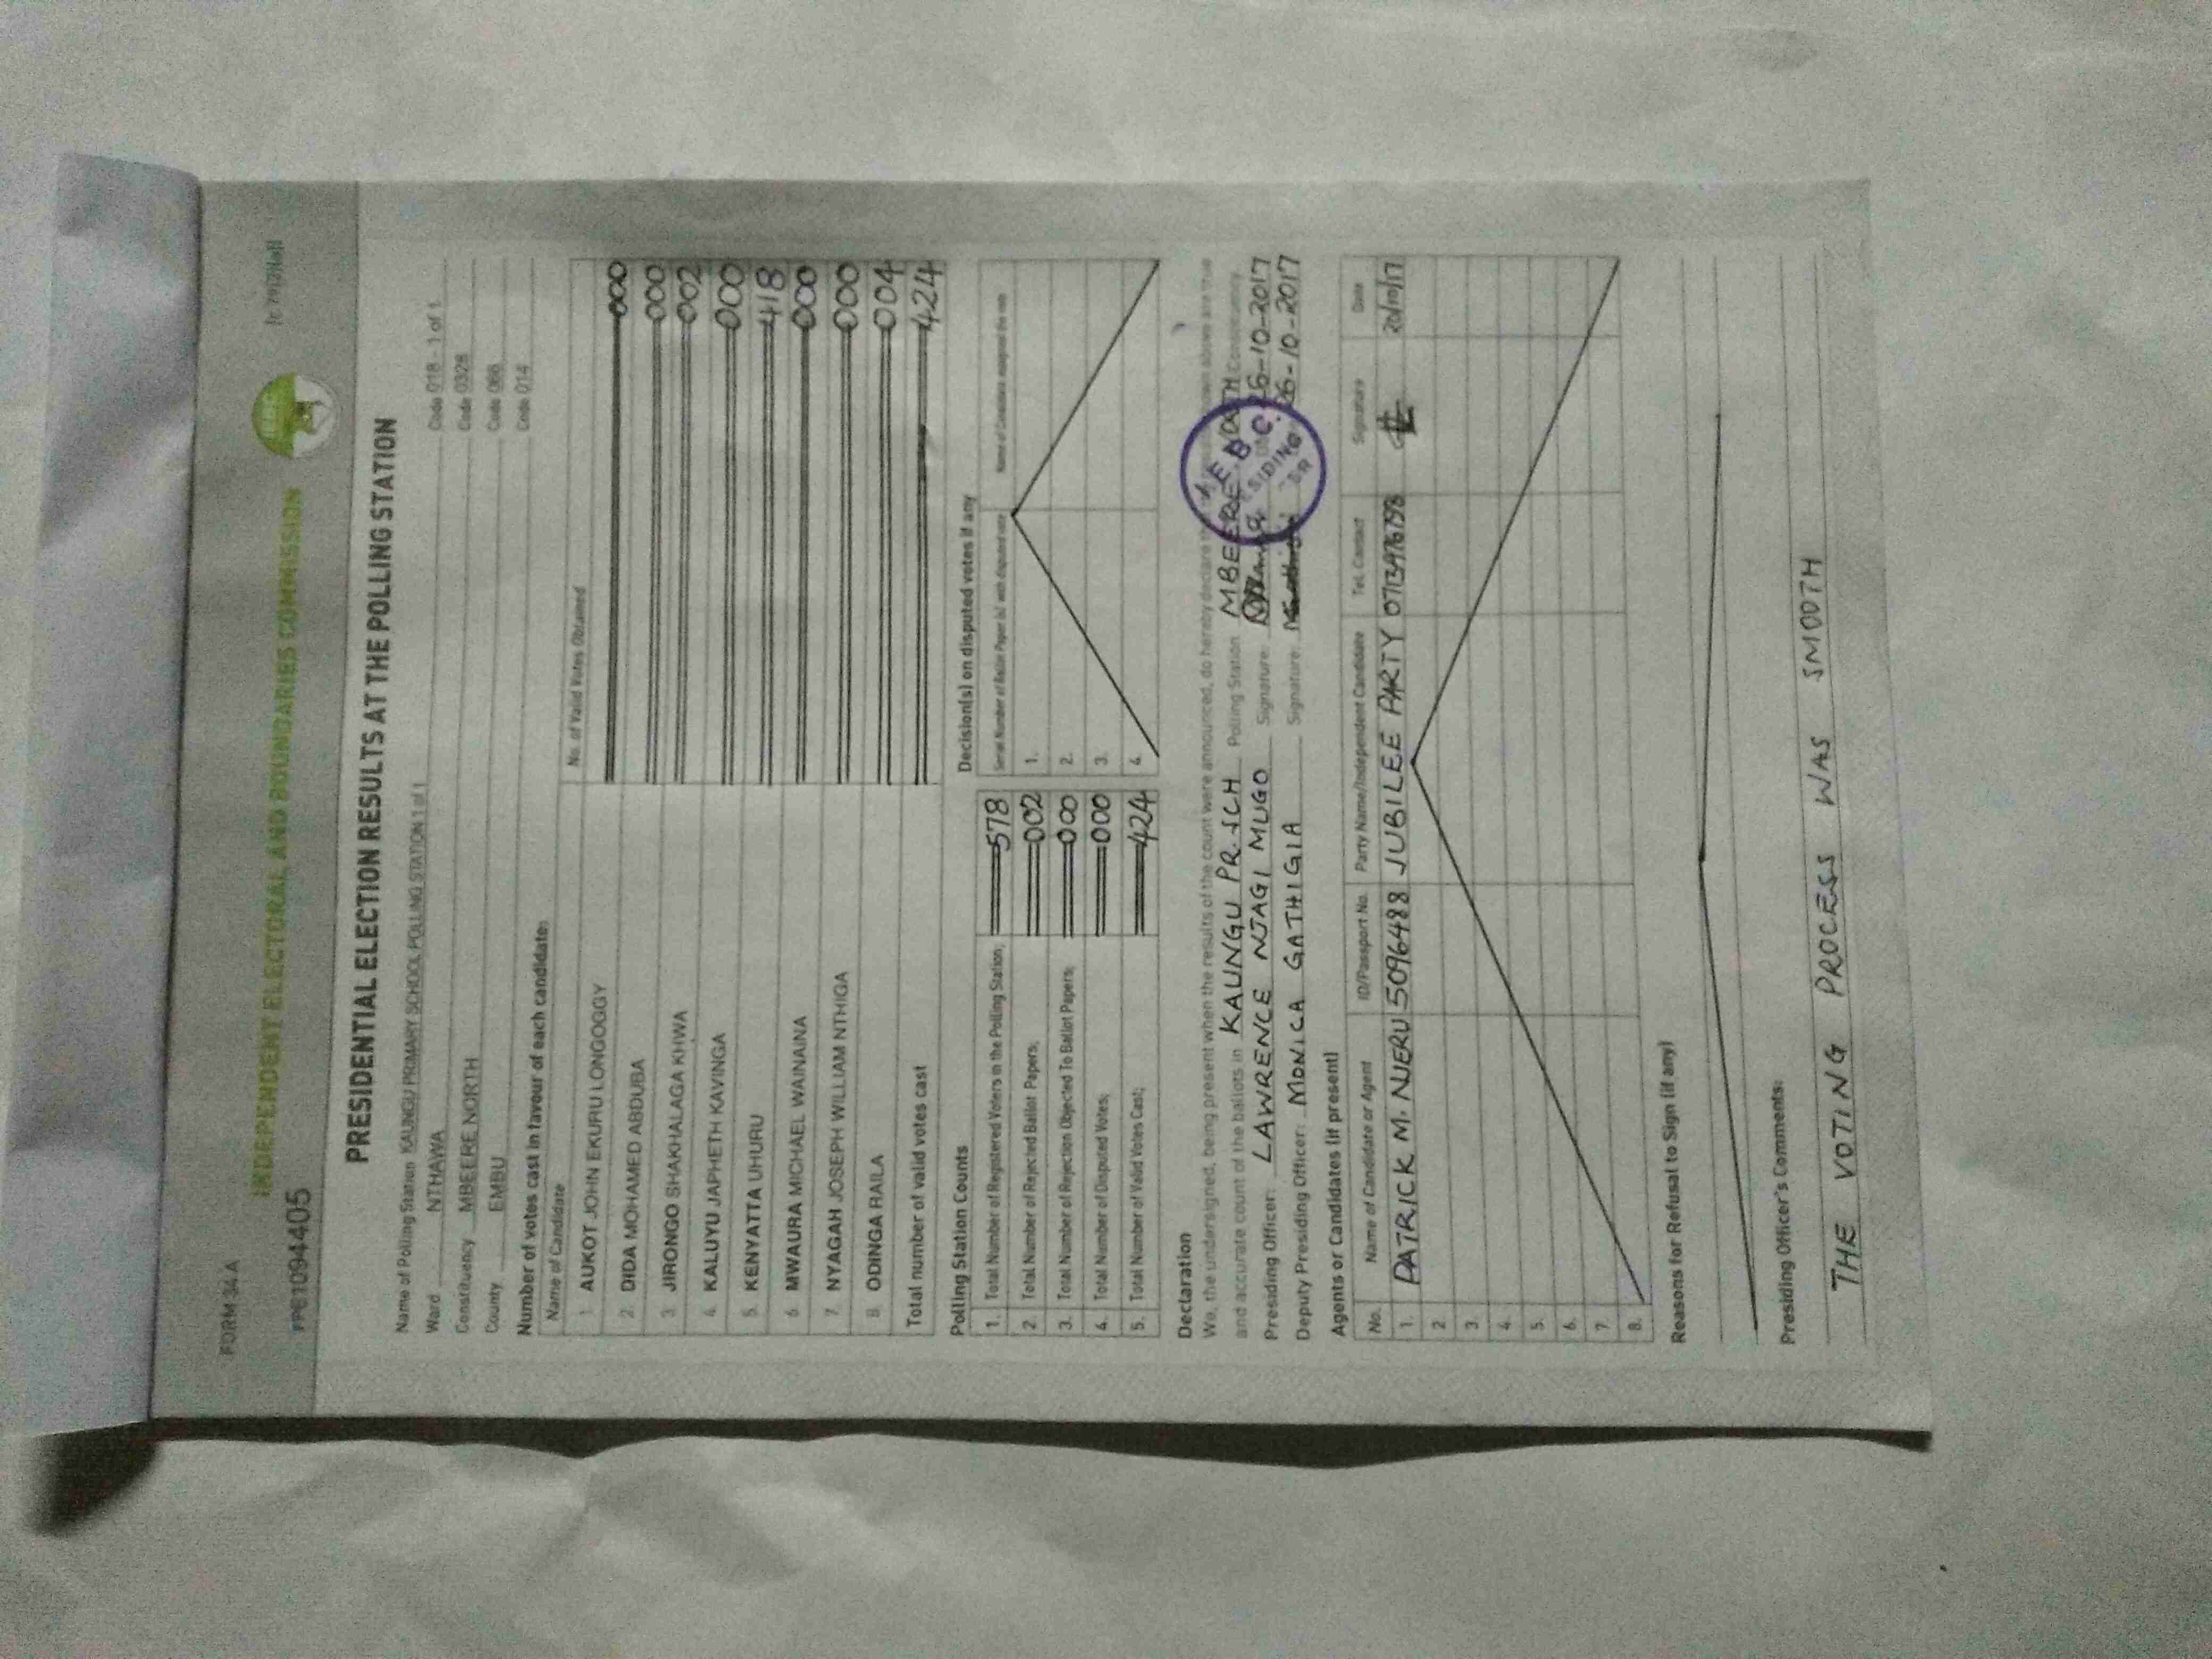 FORM 34 A
INDEPENDENT ELECTORAL AND BOUNDARIES COMMISSION
PRE1094405
PRESIDENTIAL ELECTION RESULTS AT THE POLLING STATION
Name of Polling Station KAUNGU PRIMARY SCHOOL POLLING STATION 1 of 1 Code 018 - 1 of 1
Ward NTHAWA Code 0328
Constituency MBEERE NORTH Code 066
County EMBU Code 014
Number of votes cast in favour of each candidate:
Name of Candidate No. of Valid Votes Obtained
1 AUKOT JOHN EKURU LONGOGGY 000
2. DIDA MOHAMED ABDUBA 000
3 JIRONGO SHAKHALAGA KHWA 002
4. KALUYU JAPHETH KAVINGA 000
5. KENYATTA UHURU 418
6 MWAURA MICHAEL WAINAINA 000
7. NYAGAH JOSEPH WILLIAM NTHIGA 000
8 ODINGA RAILA 004
Total number of valid votes cast 424
Polling Station Counts
1. Total Number of Registered Voters in the Polling Station; 578
2. Total Number of Rejected Ballot Papers; 002
3. Total Number of Rejection Objected To Ballot Papers; 000
4. Total Number of Disputed Votes; 000
5. Total Number of Valid Votes Cast; 424
Decision(s) on disputed votes if any
Serial Number of Ballot Paper (s) with disputed vote Name of Candidate assigned the vote
1.
2.
3.
4.
Declaration
We, the undersigned, being present when the results of the count were announced, do hereby declare shown above are true
and accurate count of the ballots in KAUNGU PR. SCH Polling Station MBEERE NORTH Constituency
Presiding Officer: LAWRENCE NJAGI MUGO Signature: 26-10-2017
Deputy Presiding Officer: MONICA GATHIGIA Signature: 26-10-2017
Agents or Candidates (if present)
No. Name of Candidate or Agent ID/Passport No. Party Name/Independent Candidate Tel. Contact Signature Date
1. PATRICK M. NJERU 5096488 JUBILEE PARTY
2.
3.
4.
5.
6.
7.
8.
Reasons for Refusal to Sign (if any)
Presiding Officer's Comments:
THE VOTING PROCESS WAS SMOOTH